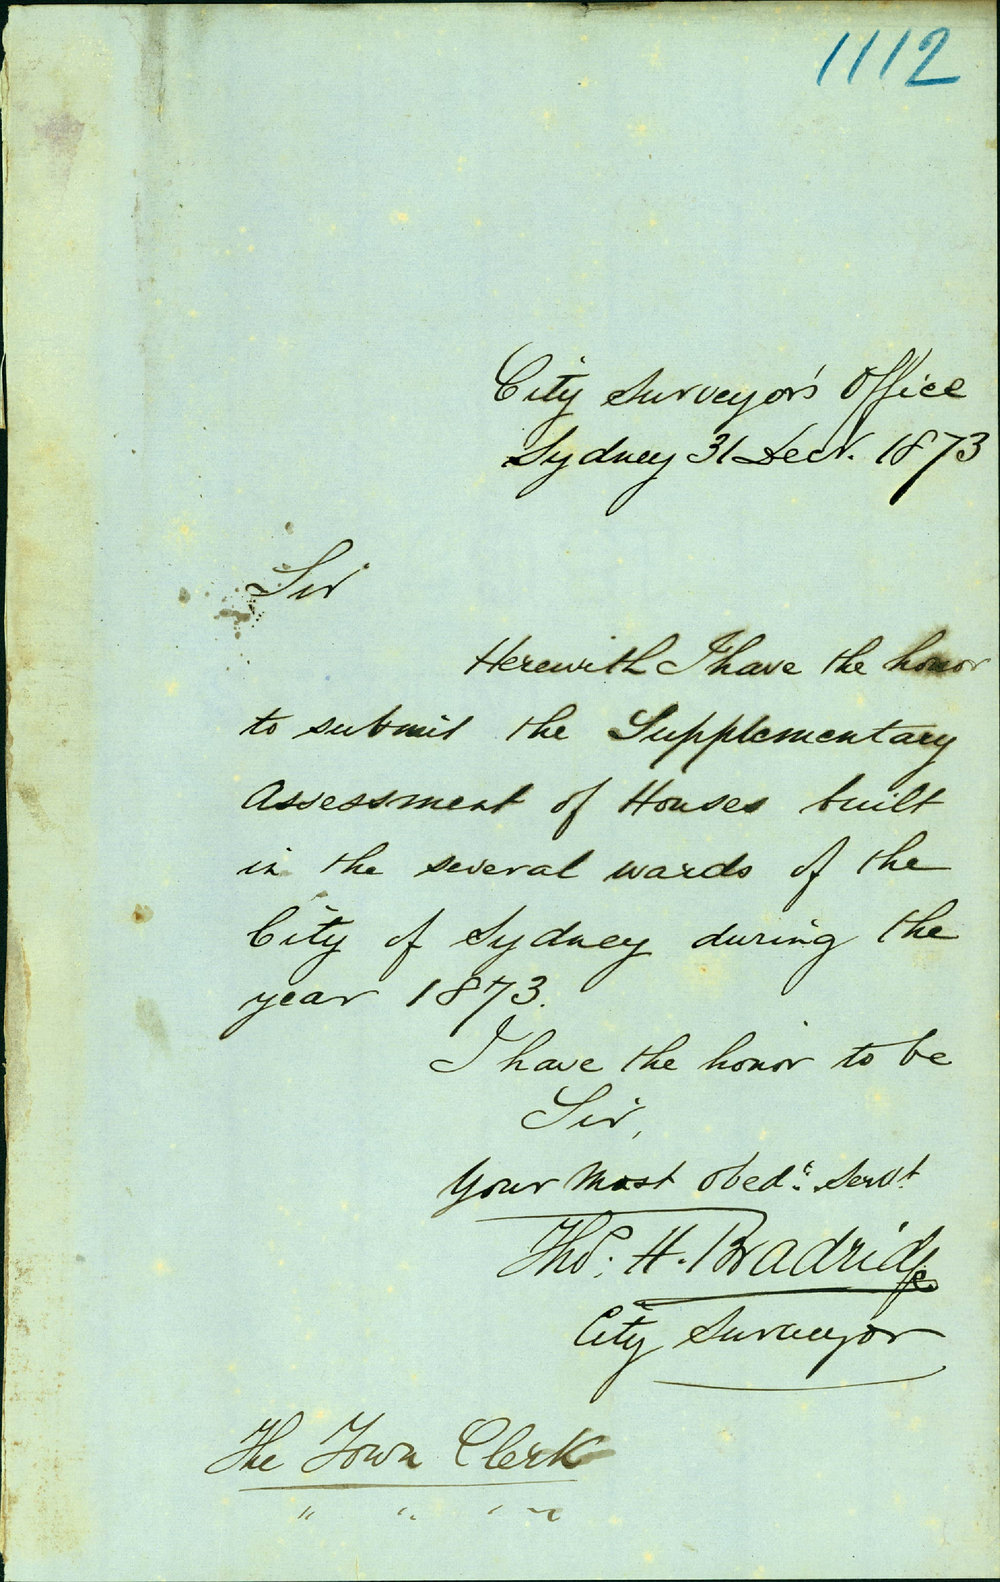 1112
City Surveyor's Office
Sydney 31 Decr. 1873
Sir
Herewith I have the honor
to submit the Supplementary
Assessment of Houses built
in the several wards of the
City of Sydney during the
year 1873.
I have the honor to be
Sir,
Your Most Obedt. Servt.
Thos. H. Bradridge
City Surveyor
The Town Clerk
" " " "